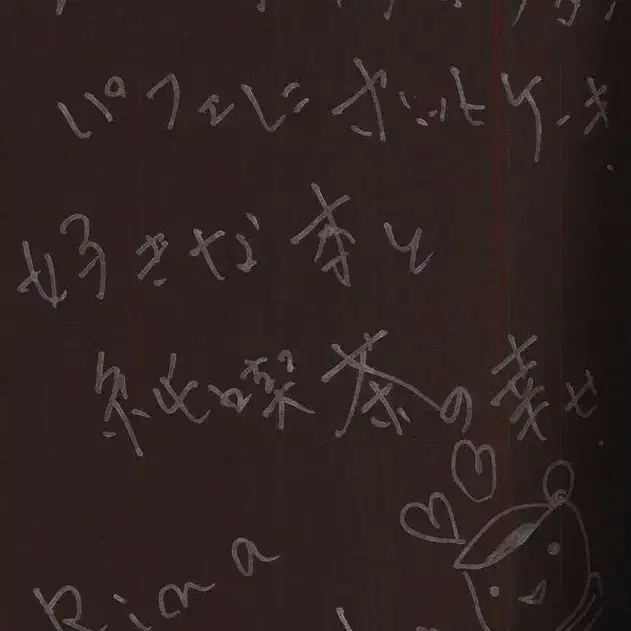 パフェに ホットケーキ
好きな本と
純喫茶の幸せ
Rina